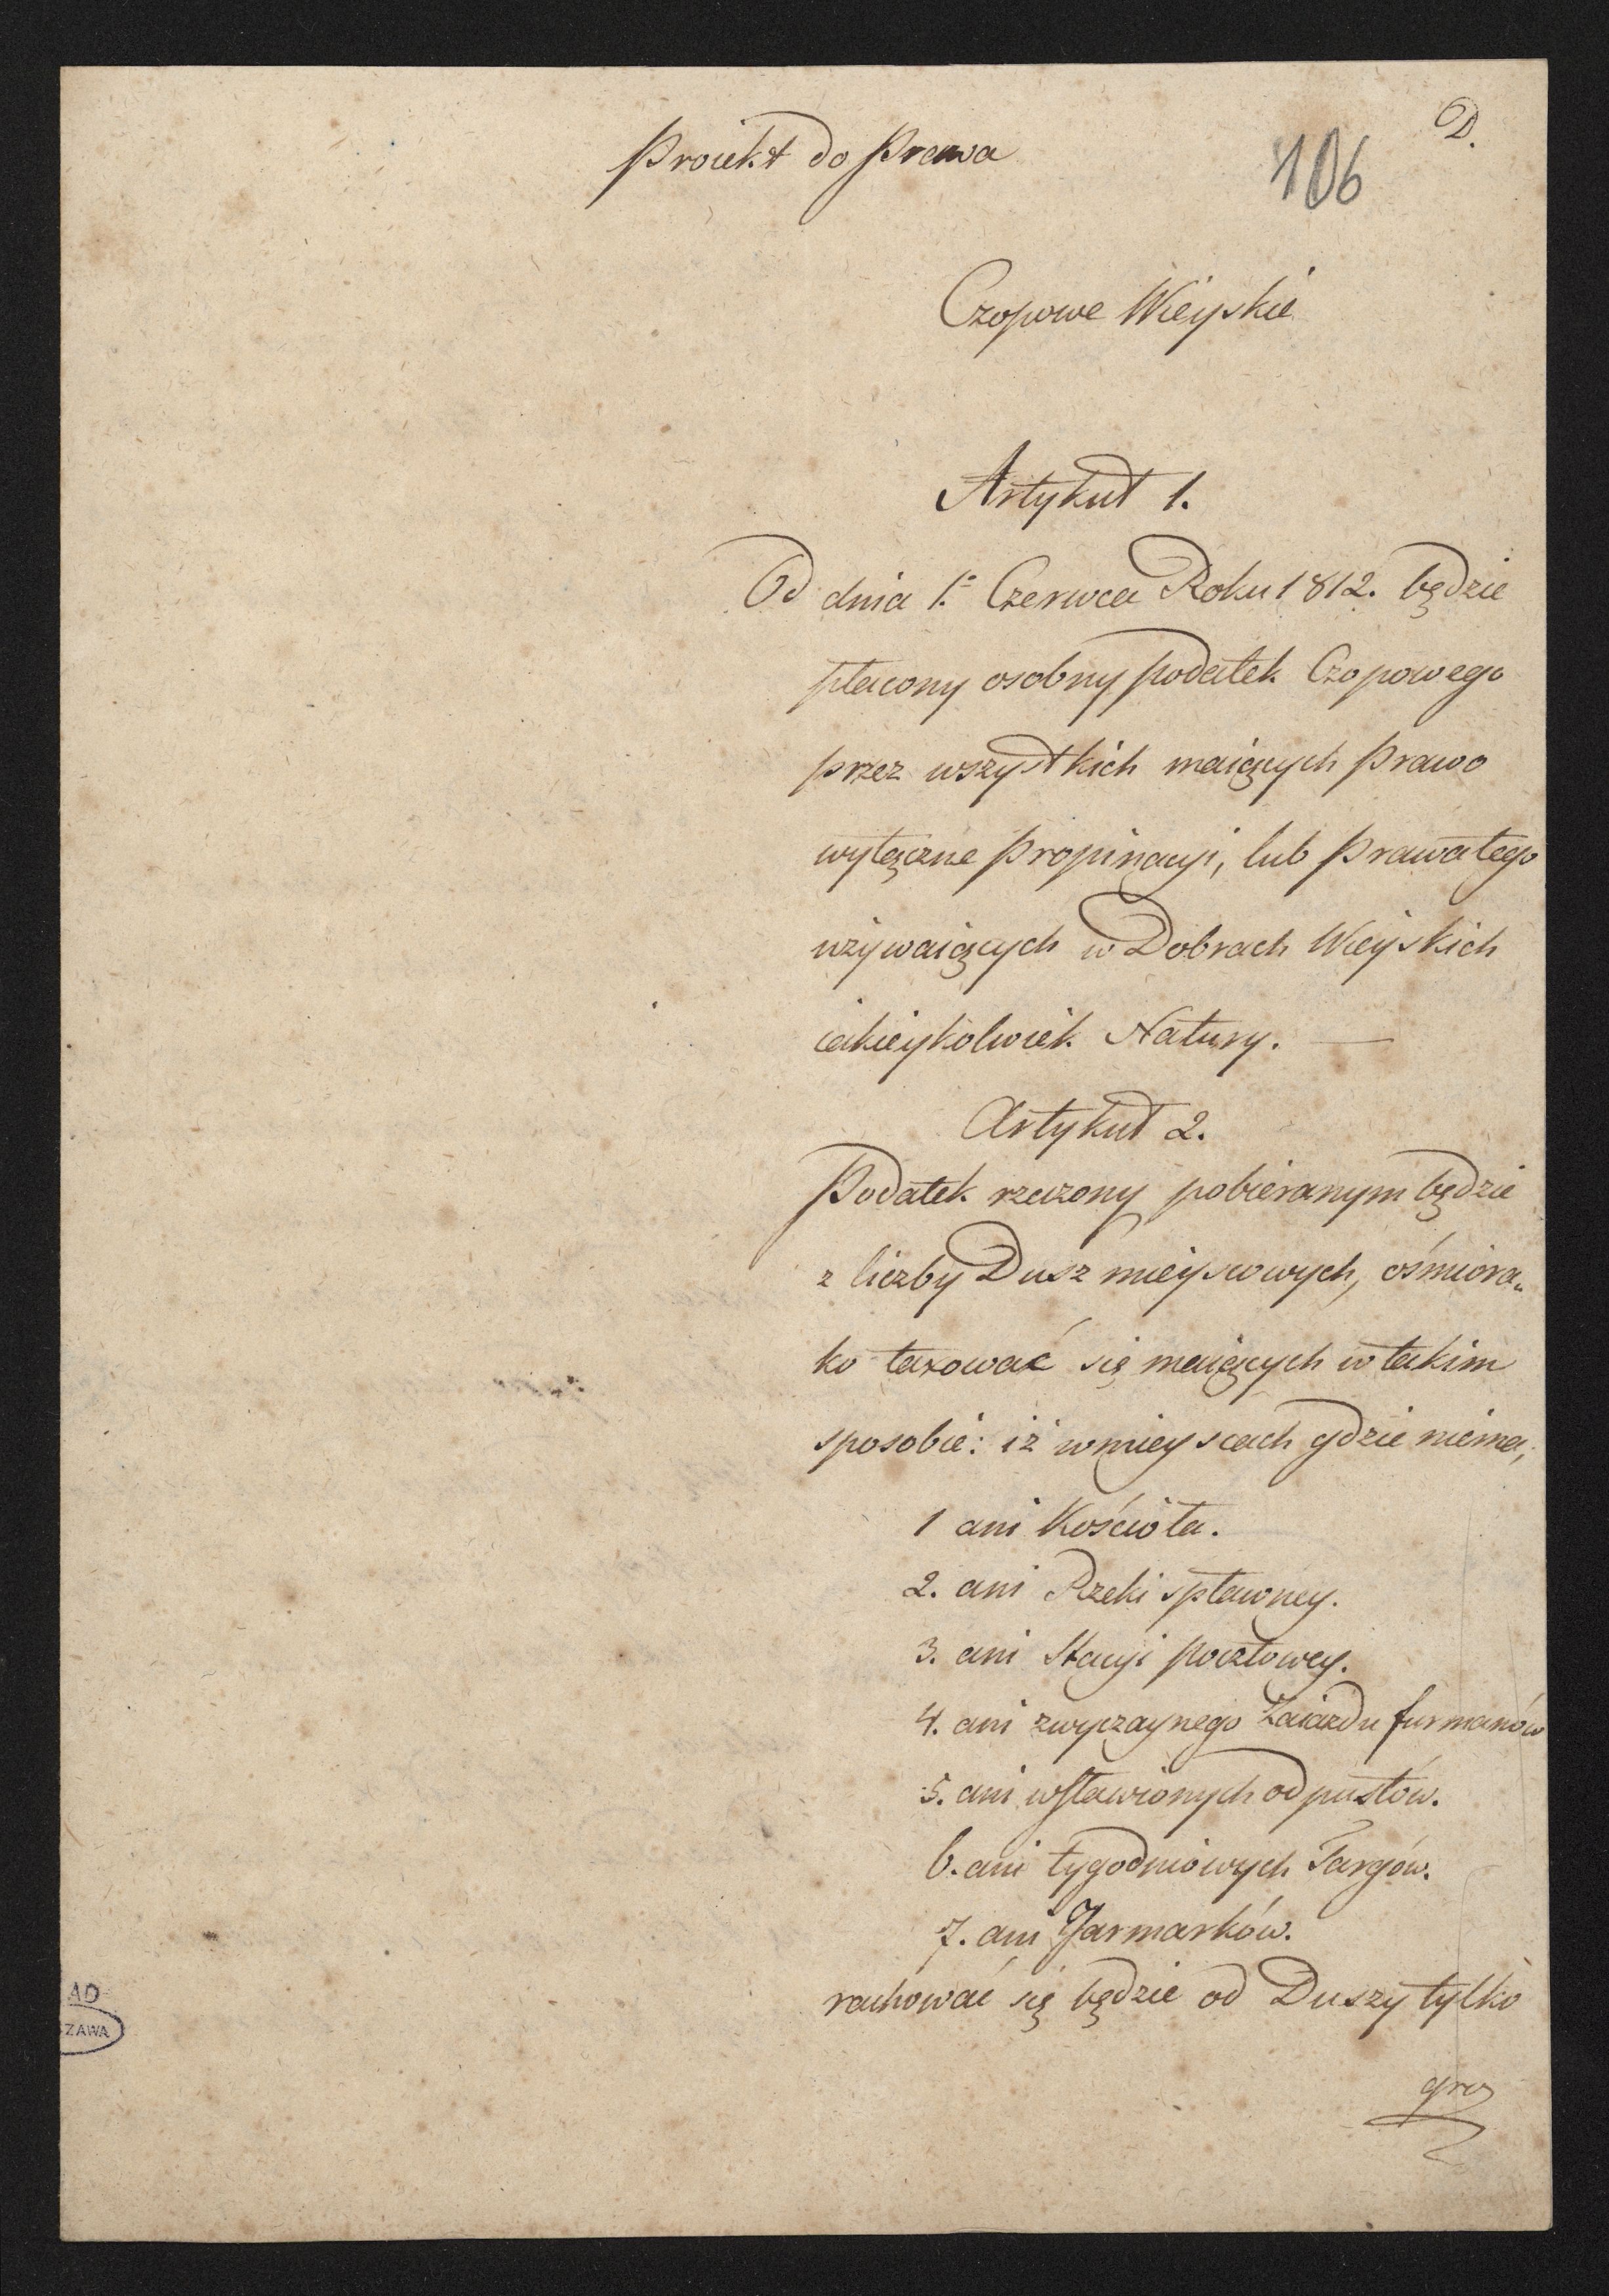 D.
Proiekt do Prawa
106
Czopowe Wieyskie
Artykuł 1.
Od dnia 1º Czerwca Roku 1812. będzie
płacony osobny podatek Czopowego
przez wszystkich maiących Prawo
wyłączne Propinacyi, lub Prawa tego
używaiących w Dobrach Wieyskich
iakieykolwiek Natury. —
Artykuł 2.
Podatek rzeczony pobieranym będzie
z liczby Dusz mieyscowych, ośmiora„
ko taxować się maiących w takim
sposobie: iż w mieyscach gdzie niema,
1 ani Kościoła.
2. ani Rzeki spławney.
3. ani Stacyi pocztowey.
4. ani zwyczaynego Zaiazdu furmanów
5. ani wsławionych odpustów.
6. ani tygodniowych Targów.
7. ani Jarmarków.
rachować się będzie od Duszy tylko
gro
AD
SZAWA